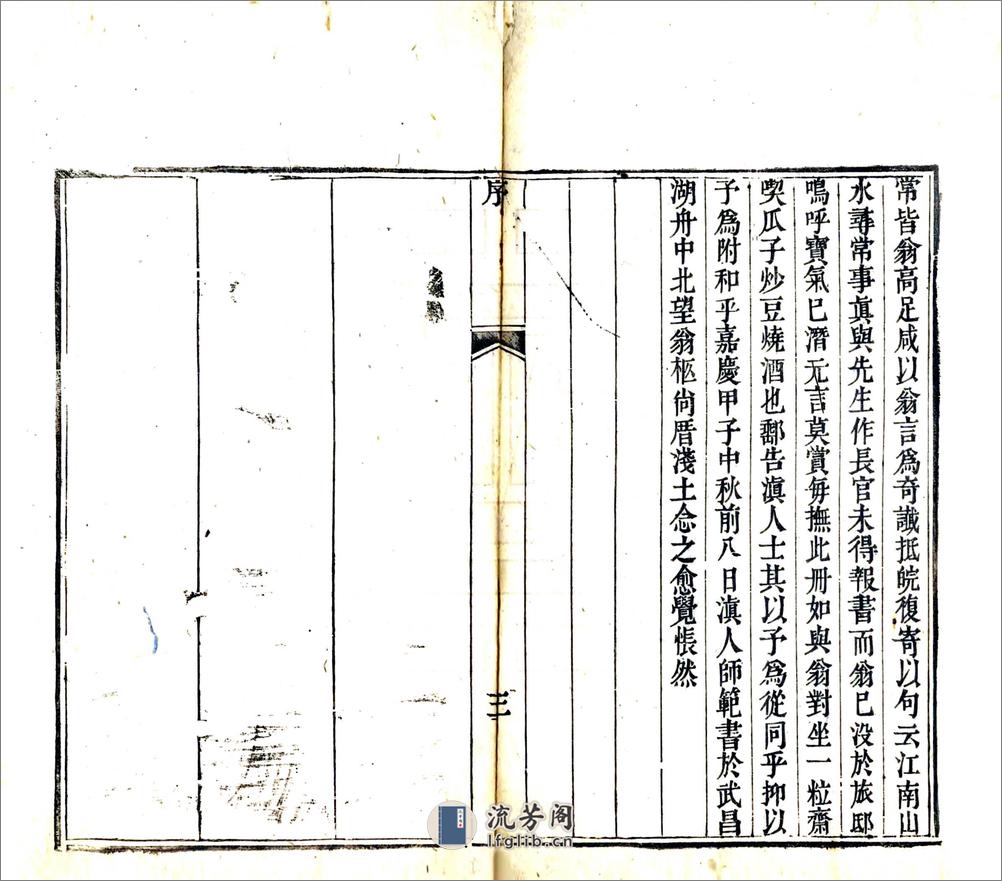 常皆翁高足咸以翁言爲奇讖抵皖復寄以句云江南山
水尋常事眞與先生作長官未得報書而翁已没於旅邸
嗚呼寶氣已潛元言莫賞每撫此册如與翁對坐一粒齋
喫瓜子炒豆燒酒也鄱告滇人士其以予爲從同乎抑以
子爲附和乎嘉慶甲子中秋前八日滇人師範書於武昌
湖舟中北望翁柩尙厝淺土念之愈覺悵然
序
三
流芳阁
lfglib.cn